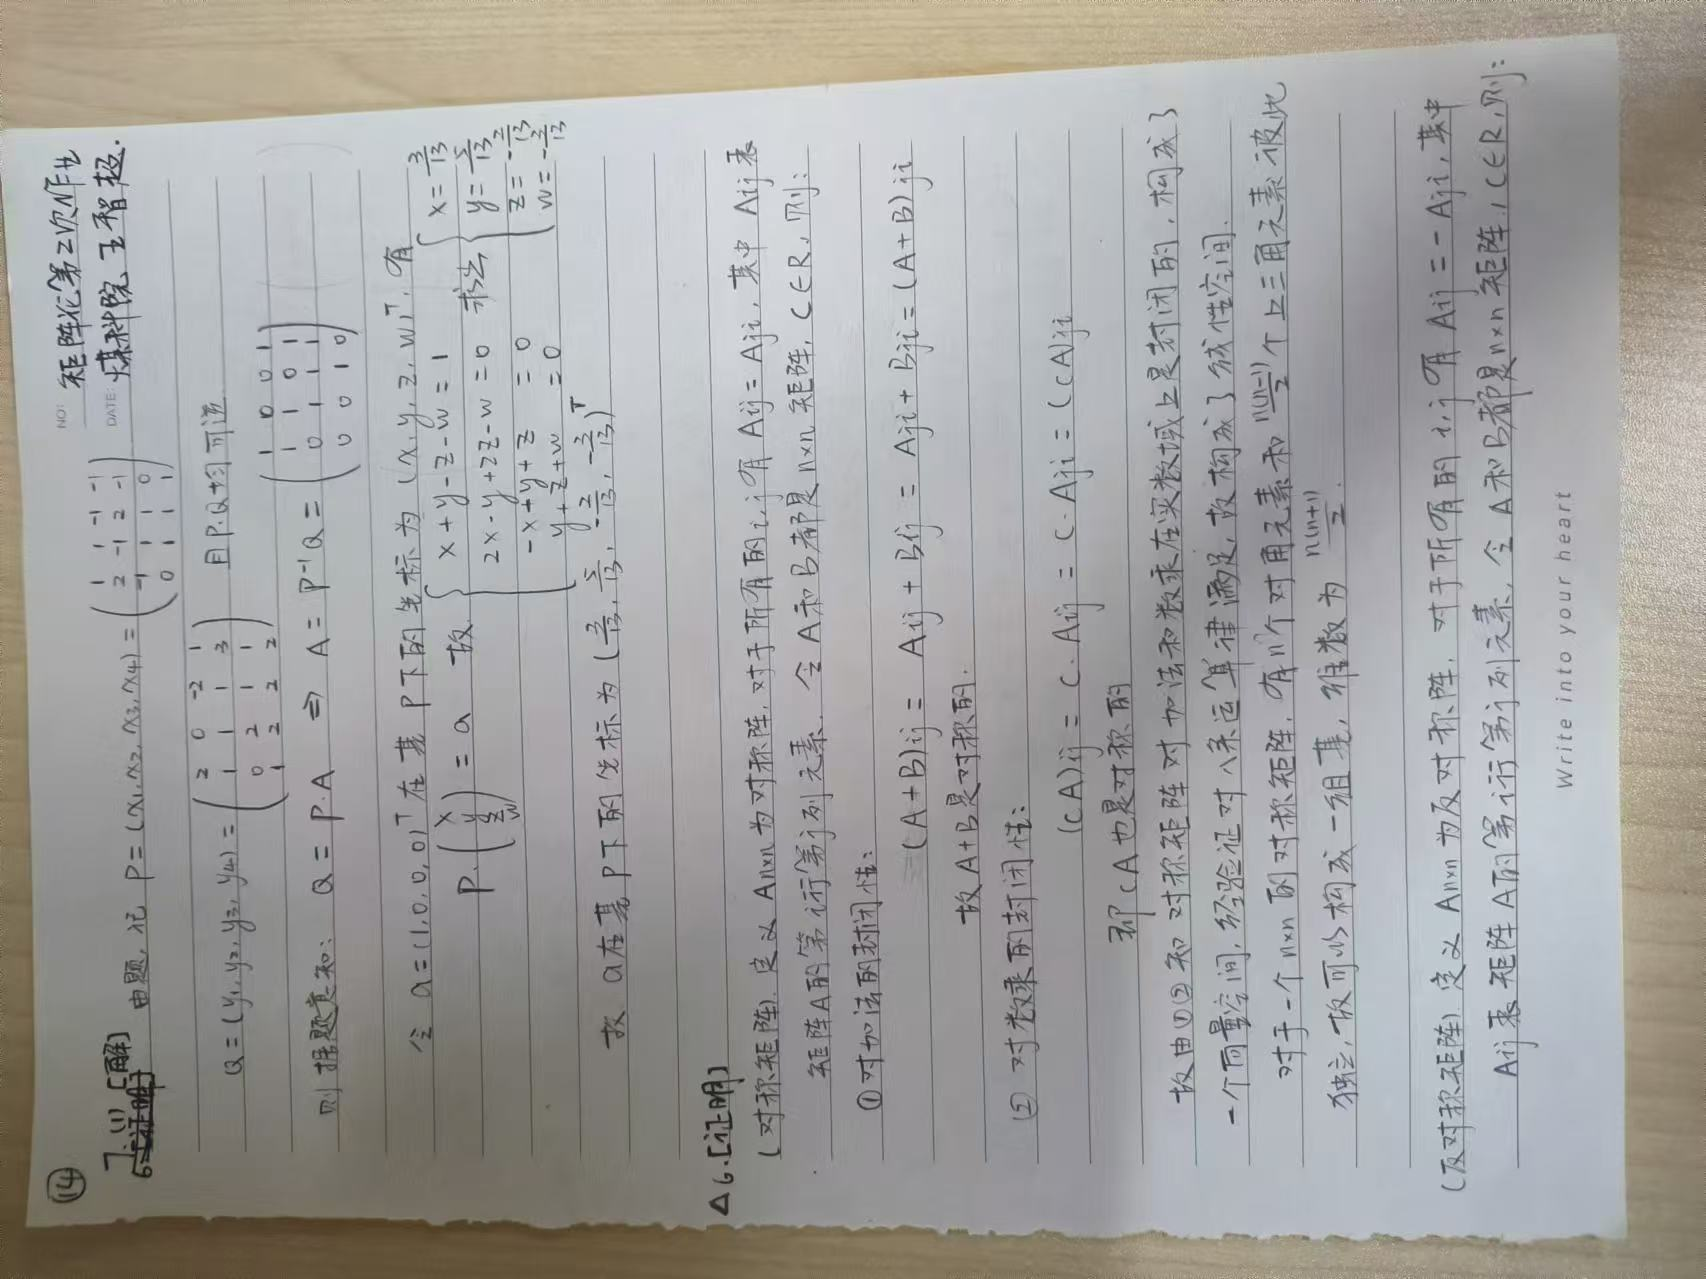 ⑭
NO: 矩阵论第2次作业
DATE: 煤科院 王智超.
7.(1) [解] 由题,记 P=(x₁,x₂,x₃,x₄) = ( 1 1 -1 -1
2 -1 2 -1
-1 1 1 0
0 1 1 1 )
6.[证明]
Q=(y₁,y₂,y₃,y₄) = ( 2 0 -2 1
1 1 1 3
0 2 1 1
1 2 2 2 ) 且P.Q均可逆
则据题意知: Q = P.A ⇒ A = P⁻¹Q = ( 1 0 0 1
1 1 0 1
0 1 1 1
0 0 1 0 )
令 a=(1,0,0,0)ᵀ在基P下的坐标为 (x,y,z,w)ᵀ,有
P.( x
y
z
w ) = a 故 { x+y-z-w=1
2x-y+2z-w=0
-x+y+z =0
y+z+w =0 求之 { x=3/13
y=5/13
z=-2/13
w=-3/13
故 a在基P下的坐标为 (3/13, 5/13, -2/13, -3/13)ᵀ
△6.[证明]
(对称矩阵).定义 Anxn为对称阵,对于所有的i,j有 Aij=Aji,其中 Aij表
矩阵A的第i行第j列元素.令A和B都是nxn矩阵,C∈R,则:
①对加法的封闭性:
(A+B)ij = Aij + Bij = Aji + Bji = (A+B)ji
故 A+B是对称的.
② 对数乘的封闭性:
(CA)ij = C.Aij = C.Aji = (CA)ji
即 CA也是对称的
故由①②知 对称矩阵对加法和数乘在实数域上是封闭的,构成了
一个向量空间,经验证对八条运算律满足,故构成了线性空间.
对于一个 nxn的对称矩阵,有n个对角元素和 n(n-1)/2 个上三角元素彼此
独立,故可以构成一组基,维数为 n(n+1)/2 .
(反对称矩阵).定义 Anxn为反对称阵,对于所有的i,j有 Aij=-Aji,其中
Aij表矩阵A的第i行第j列元素,令A和B都是nxn矩阵,C∈R,则:
Write into your heart